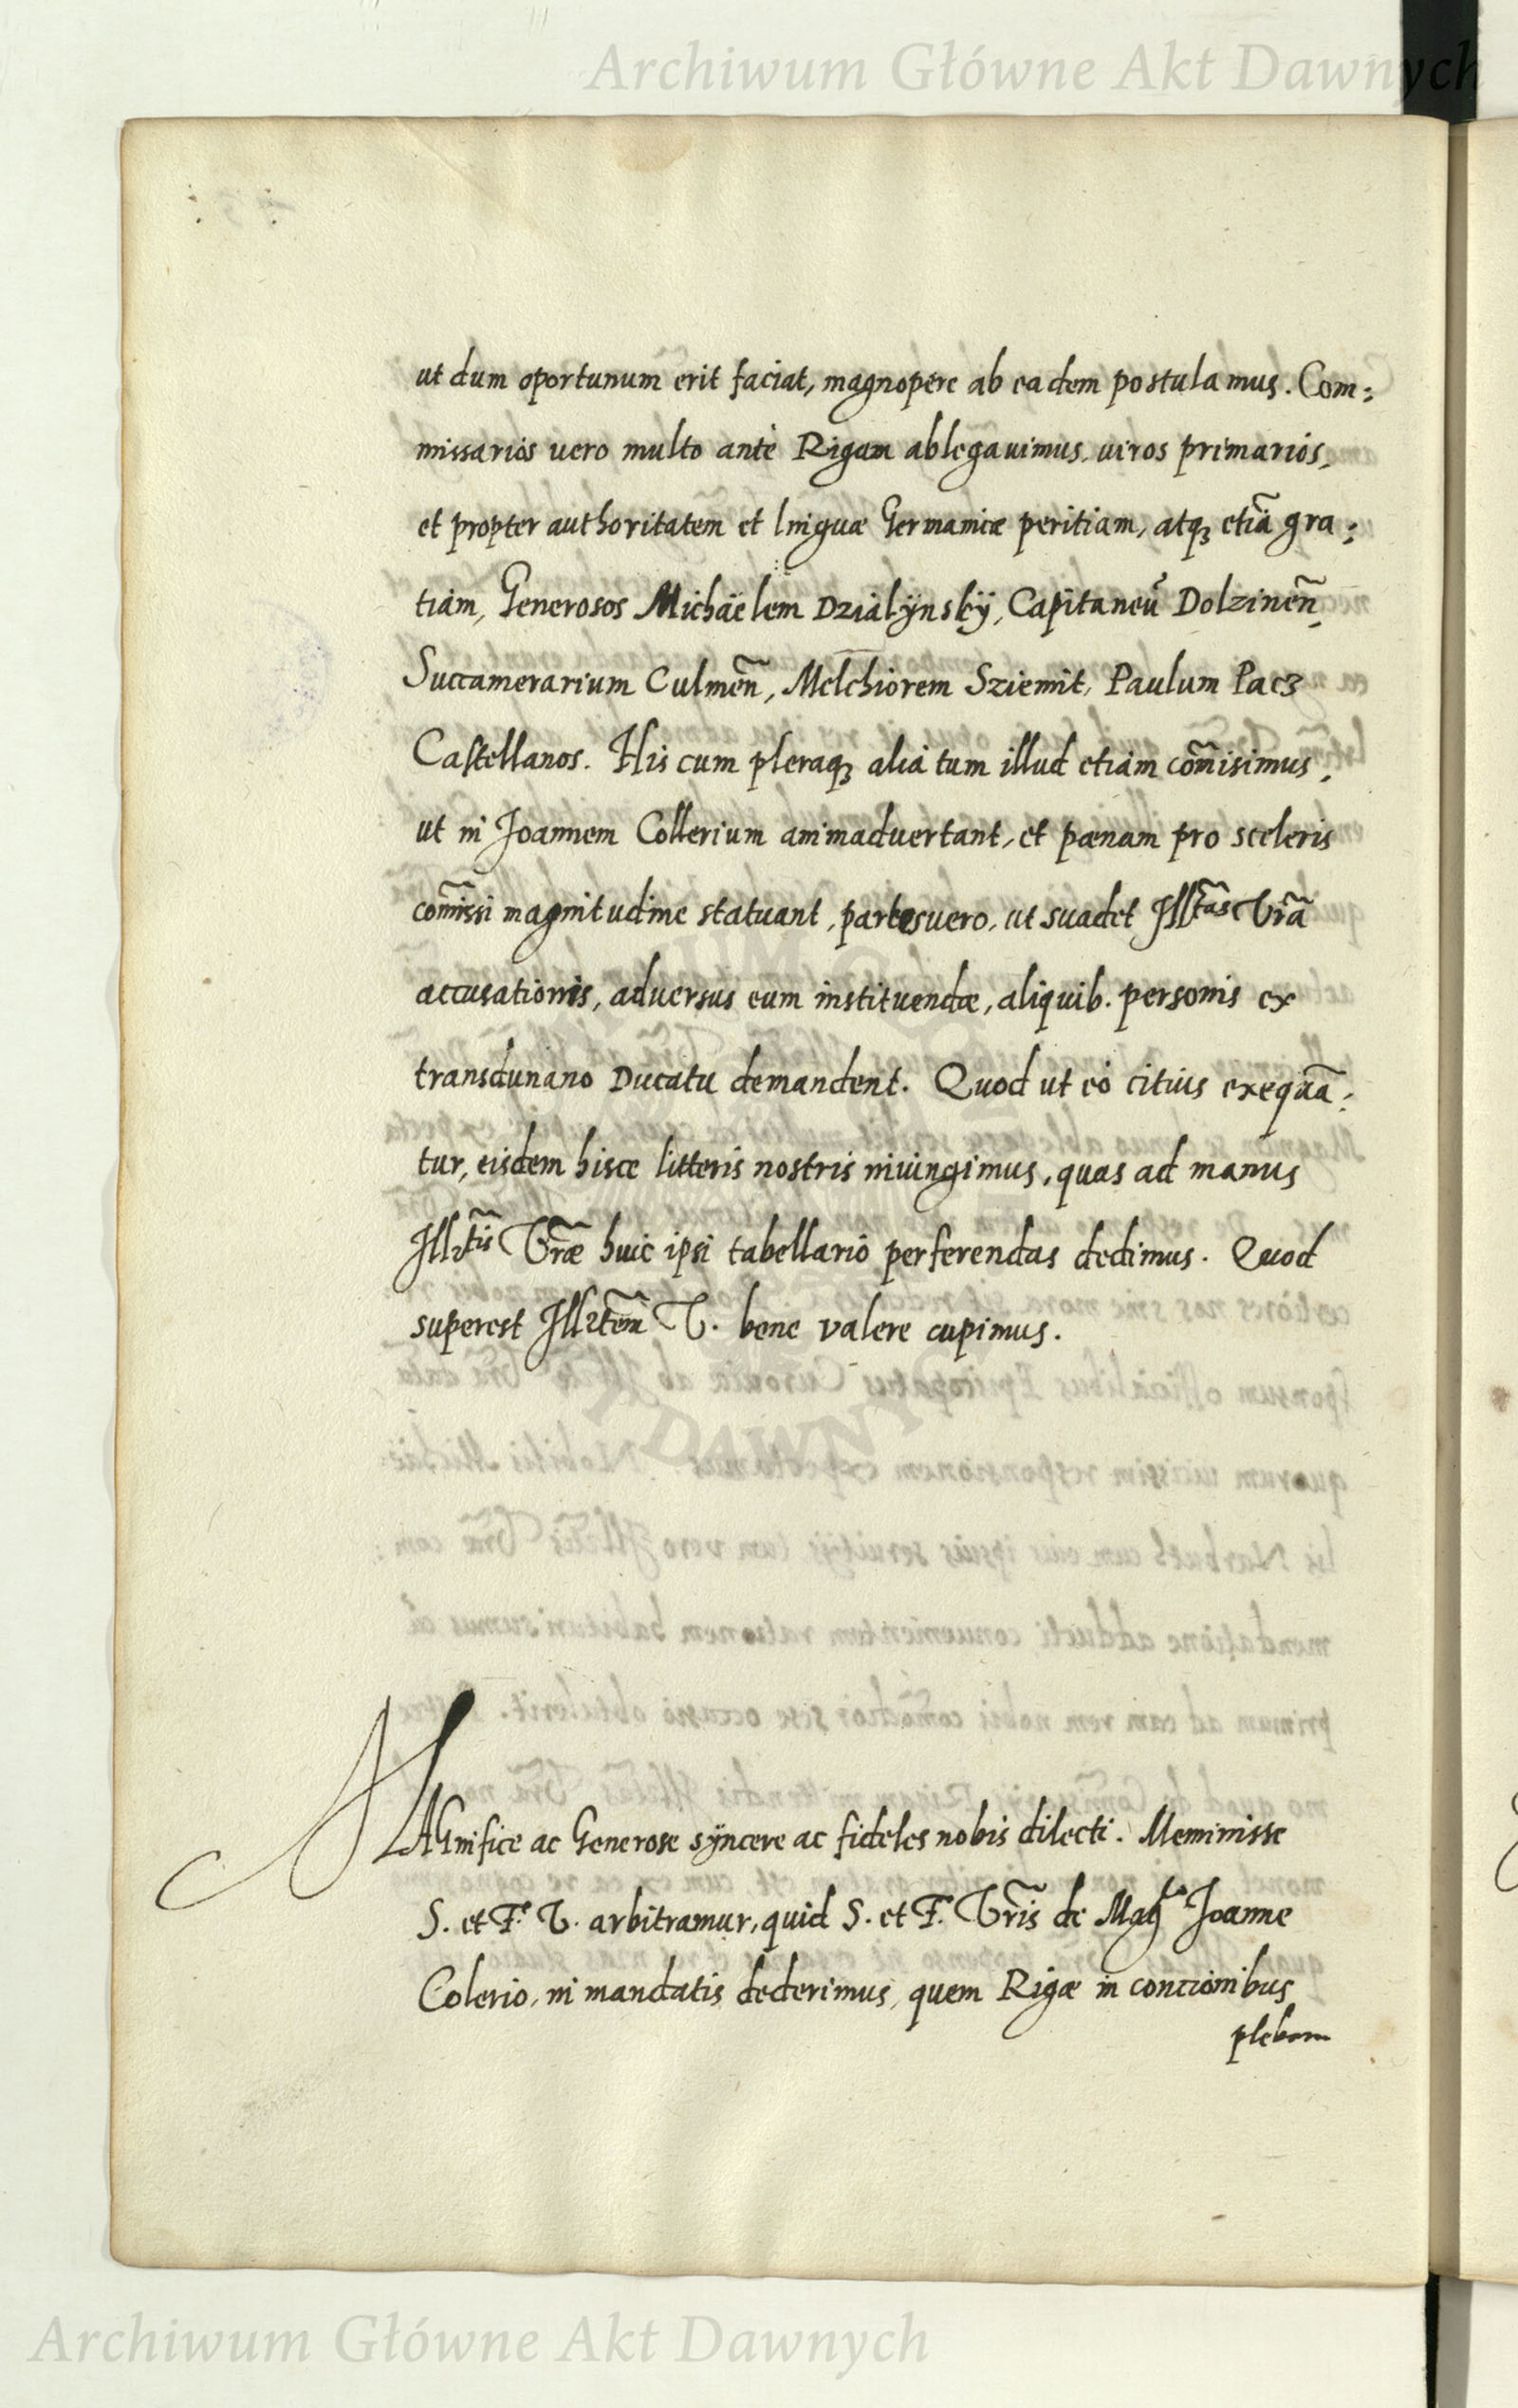 Archiwum Główne Akt Dawnych
ut dum oportunum erit faciat, magnopere ab eadem postulamus. Com:
missarios uero multo ante Rigam ablegauimus, uiros primarios,
et propter authoritatem et linguæ Germanicæ peritiam, atqꝫ etiã gra:
tiam, Generosos Michäelem Dziälÿnskÿ, Capitaneũ Dolzineñ,
Succamerarium Culmeñ, Melchiorem Sziemit, Paulum Pacz
Castellanos. His cum pleraqꝫ alia tum illud etiam com̃isimus,
ut in Joannem Collerium animaduertant, et pœnam pro sceleris
com̃issi magnitudine statuant, partes uero, ut suadet Ill^tãs Vr̃a
accusationis, aduersus eum instituendæ, aliquib. personis ex
transdunano Ducatu demandent. Quod ut eò citius exequã:
tur, eisdem hisce litteris nostris iniungimus, quas ad manus
Illr^tis Vr̃æ huic ipsi tabellario perferendas dedimus. Quod
superest Illrtem̃ V. bene valere cupimus.
MAGnifice ac Generose sÿncere ac fideles nobis dilecti. Meminisse
S. et F. V. arbitramur, quid S. et F. Vr̃is de Mag^co Joanne
Colerio, in mandatis dederimus, quem Rigæ in concionibus
plebem
Archiwum Główne Akt Dawnych